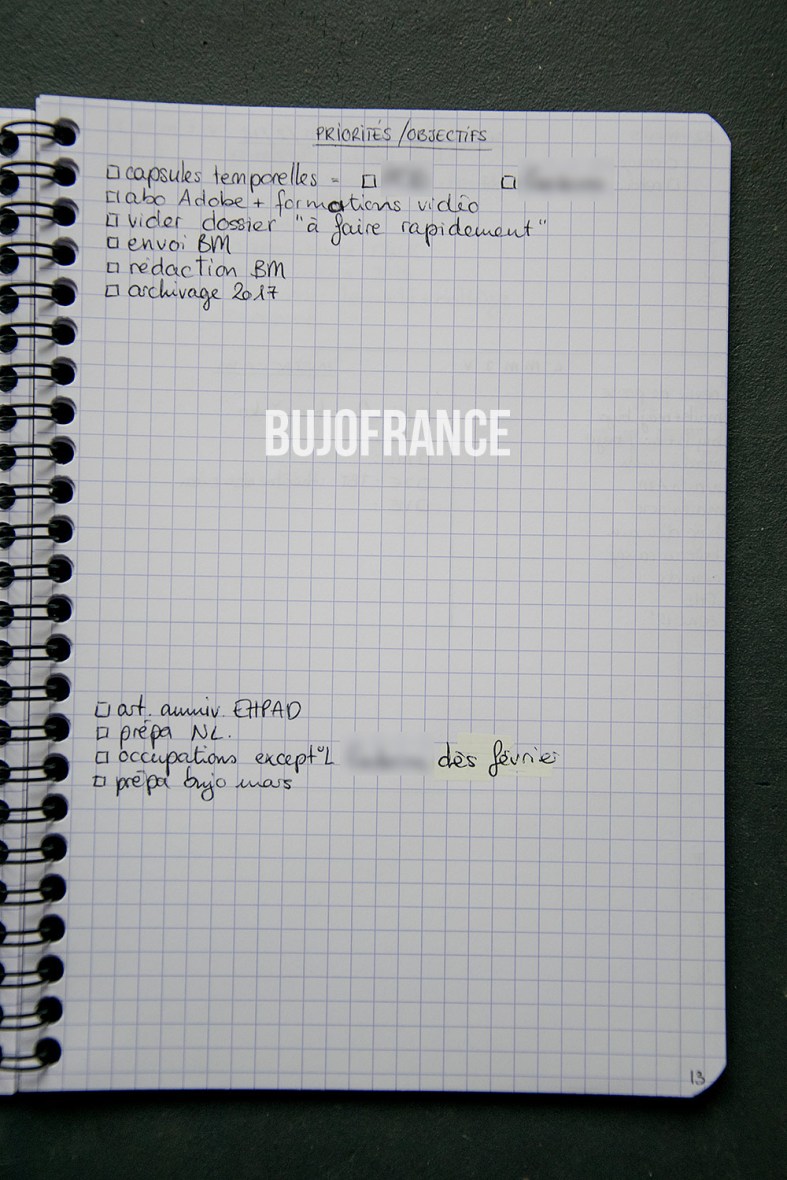 PRIORITÉS / OBJECTIFS
□ capsules temporelles = □ □
□ abo Adobe + formations vidéo
□ vider dossier "à faire rapidement"
□ envoi BM
□ rédaction BM
□ archivage 2017
BUJOFRANCE
□ art. anniv. EHPAD
□ prépa NL.
□ occupations except°L dès février
□ prépa bujo mars
13